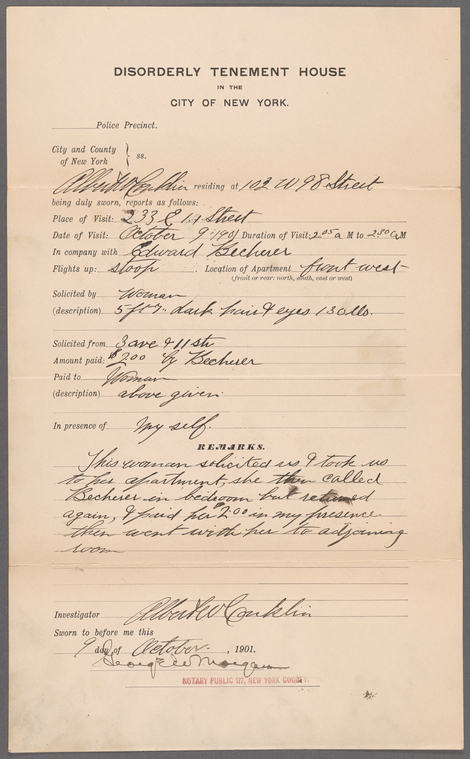 DISORDERLY TENEMENT HOUSE
IN THE
CITY OF NEW YORK.
Police Precinct.
City and County
of New York } ss.
Albert W Conklin residing at 102 W 98 Street
being duly sworn, reports as follows:
Place of Visit: 233 E Street
Date of Visit: October 9 1901 Duration of Visit: 2 05 a M to 2 50 a M
In company with Edward Becherer
Flights up: stoop Location of Apartment front west
(front or rear: north, south, east or west)
Solicited by Woman
(description) 5 ft dark hair & eyes 130 lbs.
Solicited from 3 ave & 11 str
Amount paid: $2.00 by Becherer
Paid to Woman
(description) above given
In presence of My self.
REMARKS.
This woman solicited us & took us
to her apartment, she then called
Becherer in bedroom but returned
again, & paid her $2.00 in my presence
then went with her to adjoining
room
Investigator Albert W Conklin
Sworn to before me this
9 day of October , 1901.
George W Morgan
NOTARY PUBLIC 117, NEW YORK COUNTY.